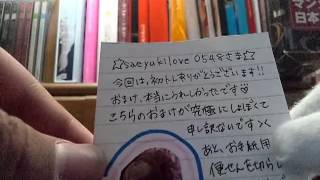 ☆saeyukilove0548さま☆
今回は、初トレありがとうございます!!
おまけ、本当にうれしかったです
こちらのおまけが究極にしょぼくて
申し訳ないです><
あと、お手紙用
便せんを切らし
マン
日本